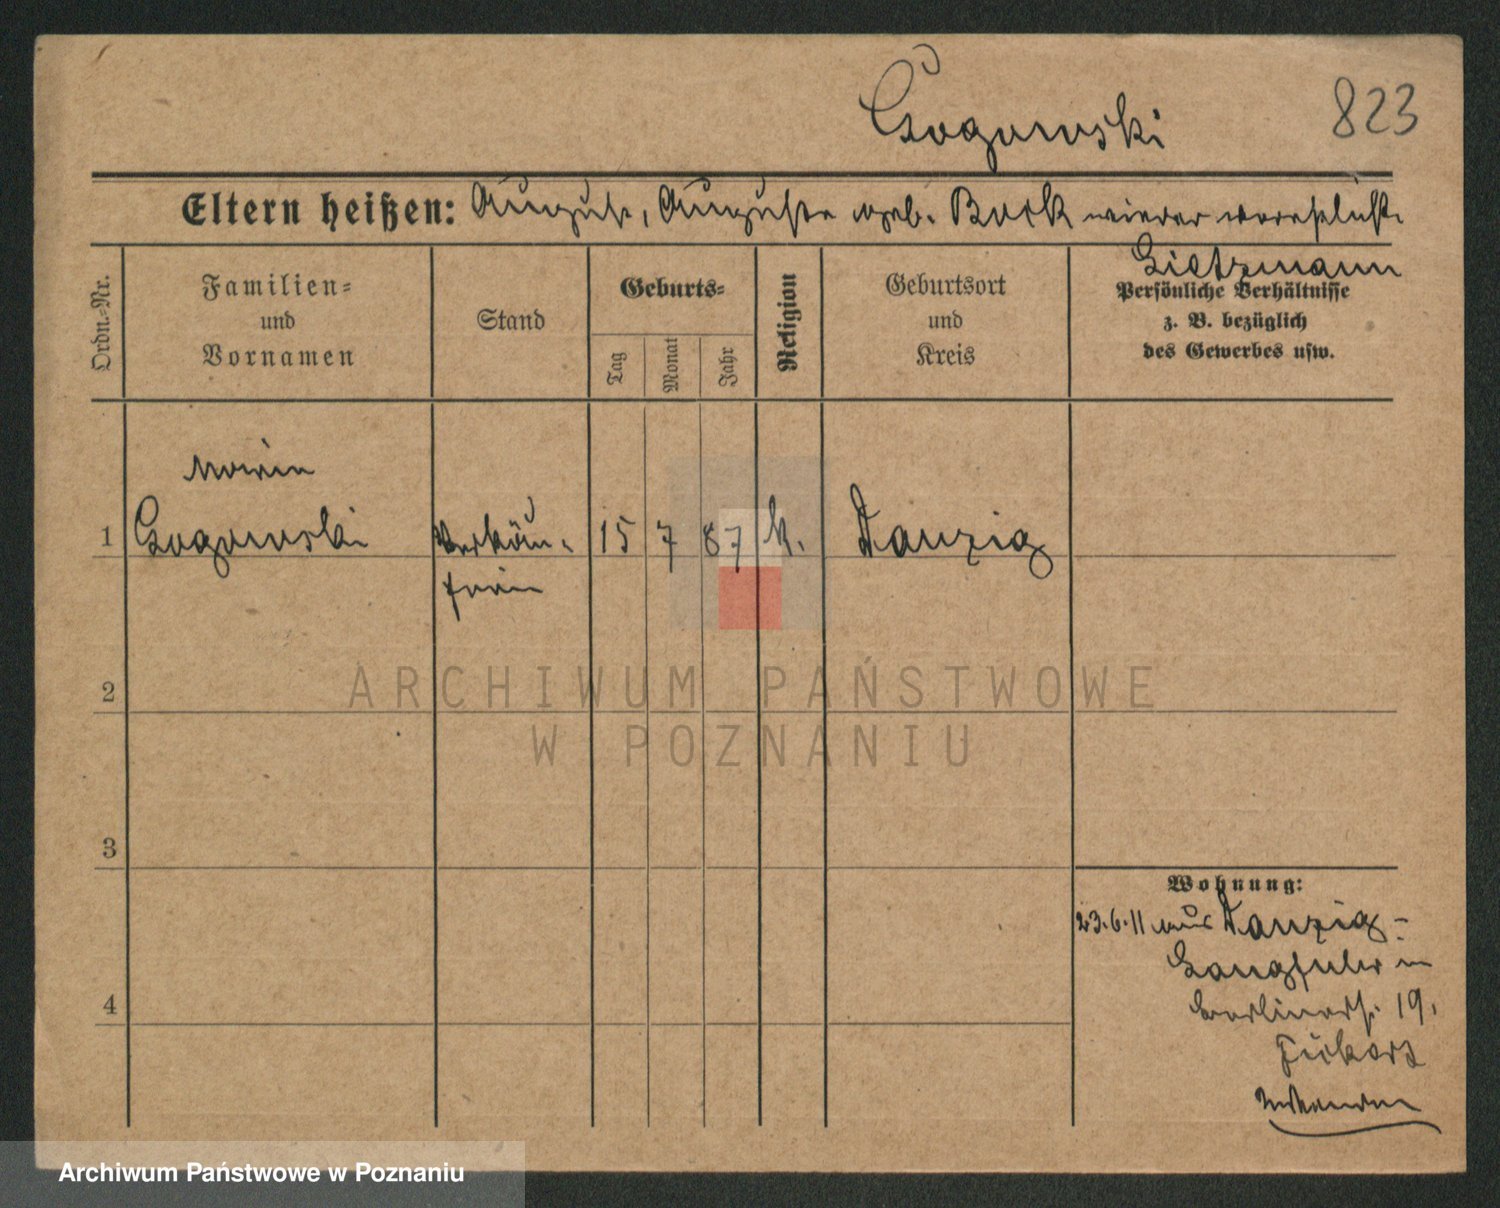 Gogowski
823
Eltern heißen: August, Auguste geb. Bock wieder verehelicht.
Zietzmann
Ordn.-Nr.
Familien-
und
Vornamen
Stand
Geburts-
Tag
Monat
Jahr
Religion
Geburtsort
und
Kreis
Persönliche Verhältnisse
z. B. bezüglich
des Gewerbes usw.
Maria
1 Gogowski Verkäu- 15 7 87 k. Danzig
ferin
2
3
4
Wohnung:
23.6.11 aus Danzig-
Langfuhr in
Berlinerstr. 19.
ARCHIWUM PAŃSTWOWE
W POZNANIU
Archiwum Państwowe w Poznaniu